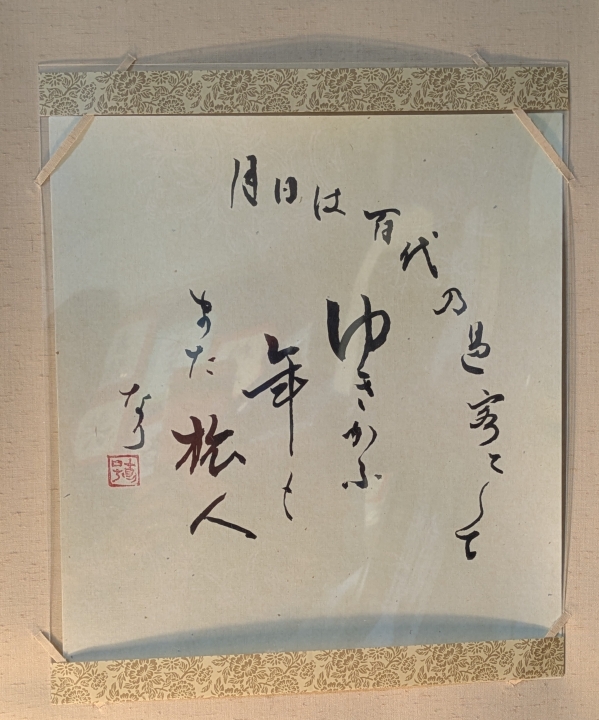 月日は百代乃過客にして
ゆきかふ
年も
また旅人
なり